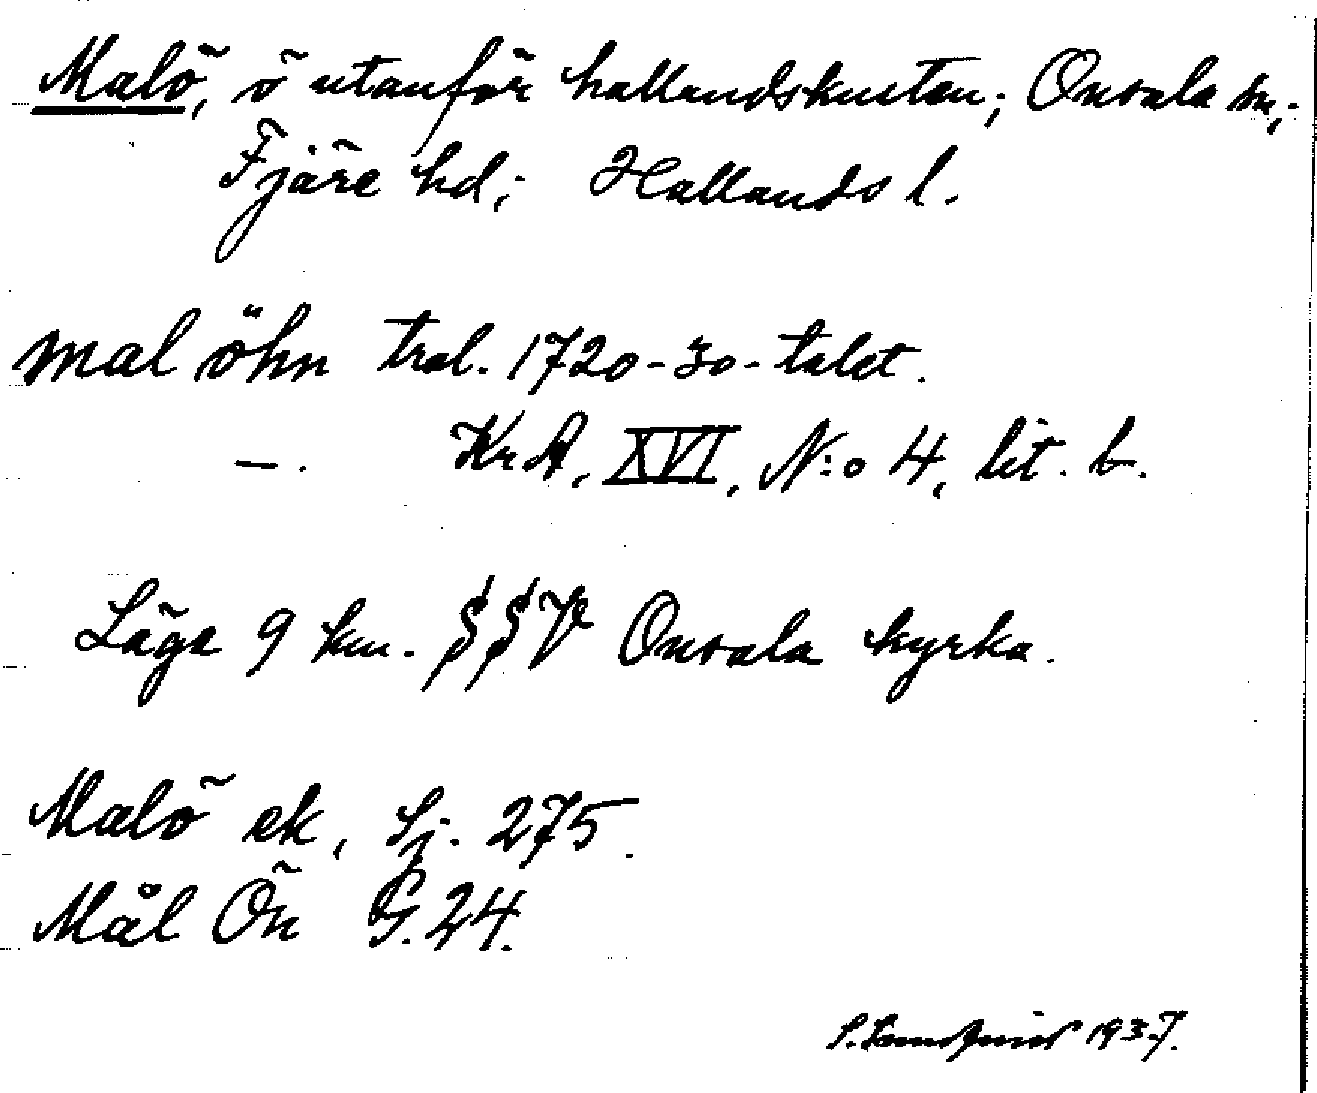 Malö, ö utanför hallandskusten; Onsala sn,
Fjäre hd; Hallands l.
mal öhn tral. 1720-30-talet.
—. KrA, XVI, N:o 4, lit. b.
Läge 9 km. SSV Onsala kyrka.
Malö ek, Sj. 275.
Mål Ön G. 24.
1937.